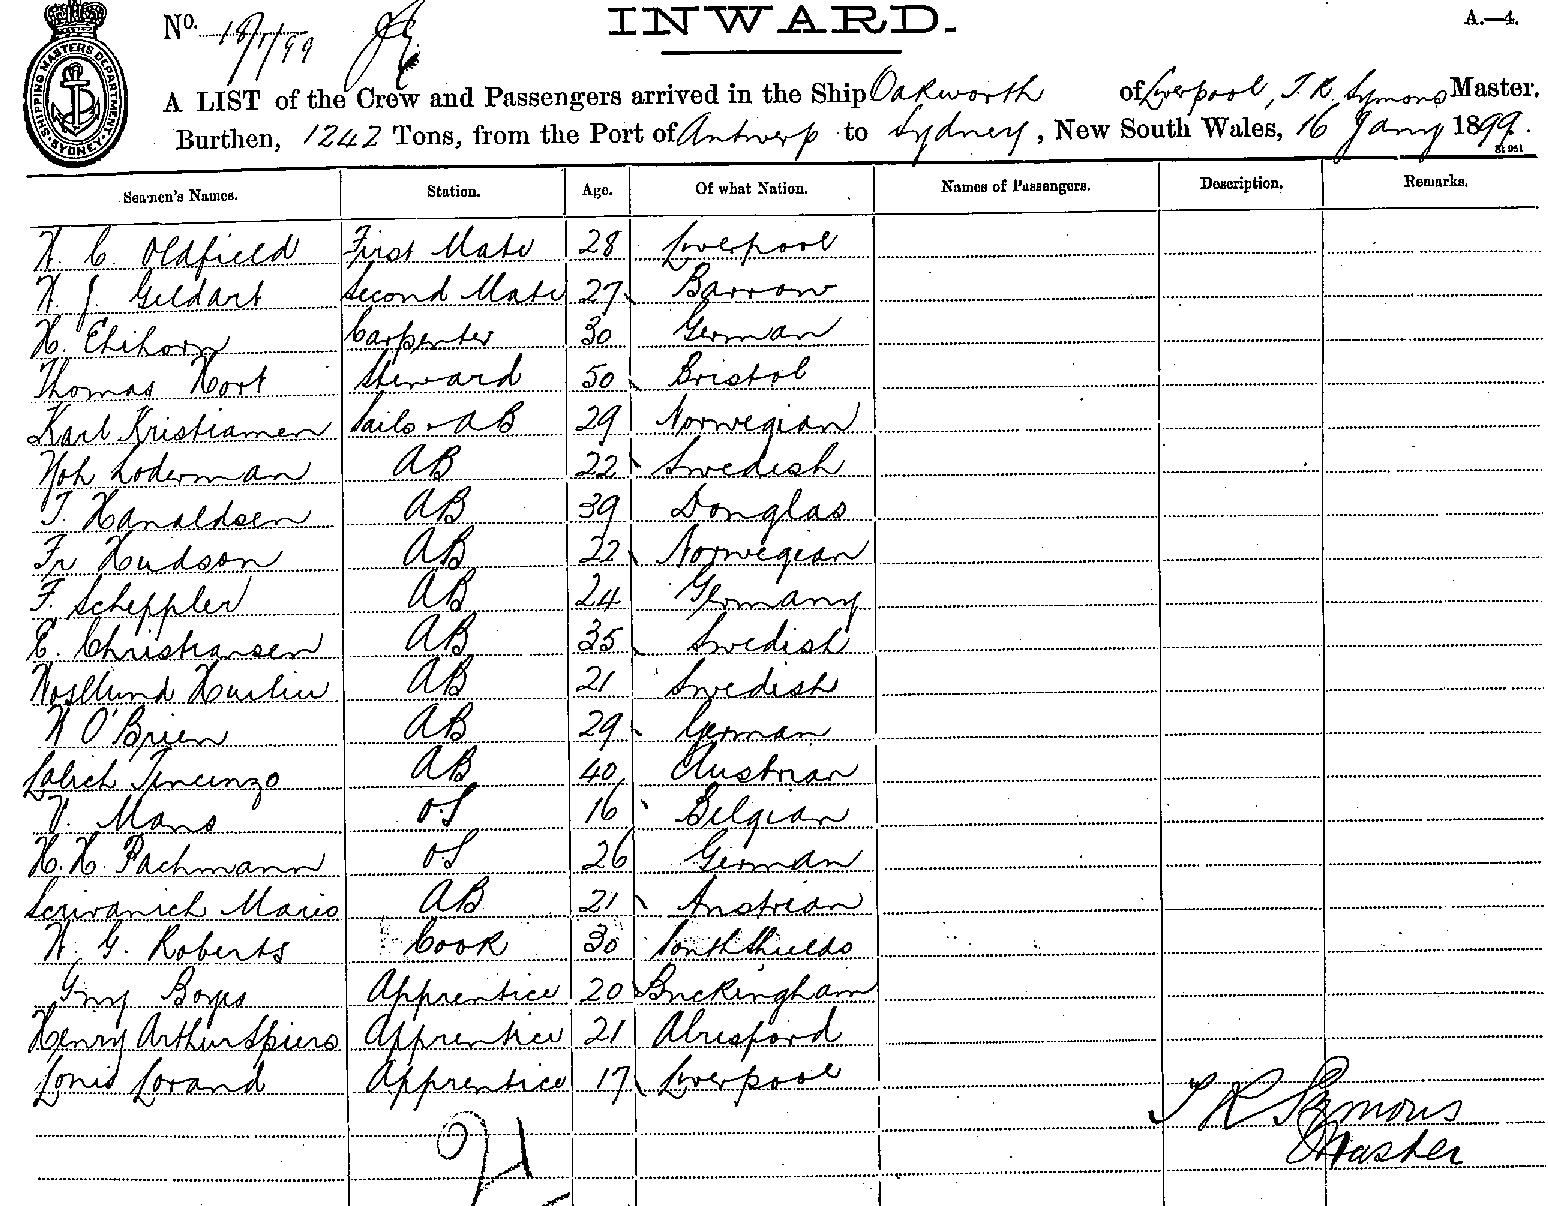 No. 18/1/99
INWARD.
A.—4.
SHIPPING MASTERS DEPARTMENT SYDNEY
A LIST of the Crew and Passengers arrived in the Ship Oakworth of Liverpool, T. R. Symons Master.
Burthen, 1242 Tons, from the Port of Antwerp to Sydney, New South Wales, 16 Jany 1899.
Seamen's Names. Station. Age. Of what Nation. Names of Passengers. Description. Remarks.
W. C. Oldfield First Mate 28 Liverpool
W. J. Geldart Second Mate 27 Barrow
H. Ehihorn Carpenter 30 German
Thomas Hort Steward 50 Bristol
Karl Kristiamen Sails & AB 29 Norwegian
Loderman AB 22 Swedish
T. Hanaldsen AB 39 Douglas
Fr Hudson AB 22 Norwegian
F. Scheppler AB 24 Germany
E. Christiansen AB 35 Swedish
AB 21 Swedish
W O'Brien AB 29 German
AB 40 Austrian
V. Mans OS 16 Belgian
H. H. Pachmann OS 26 German
Scrivanich Mario AB 21 Austrian
W. G. Roberts Cook 30 South Shields
Guy Boys Apprentice 20 Buckingham
Henry Arthur Spiers Apprentice 21 Alresford
Louis Lorand Apprentice 17 Liverpool
T R Symons
Master
21